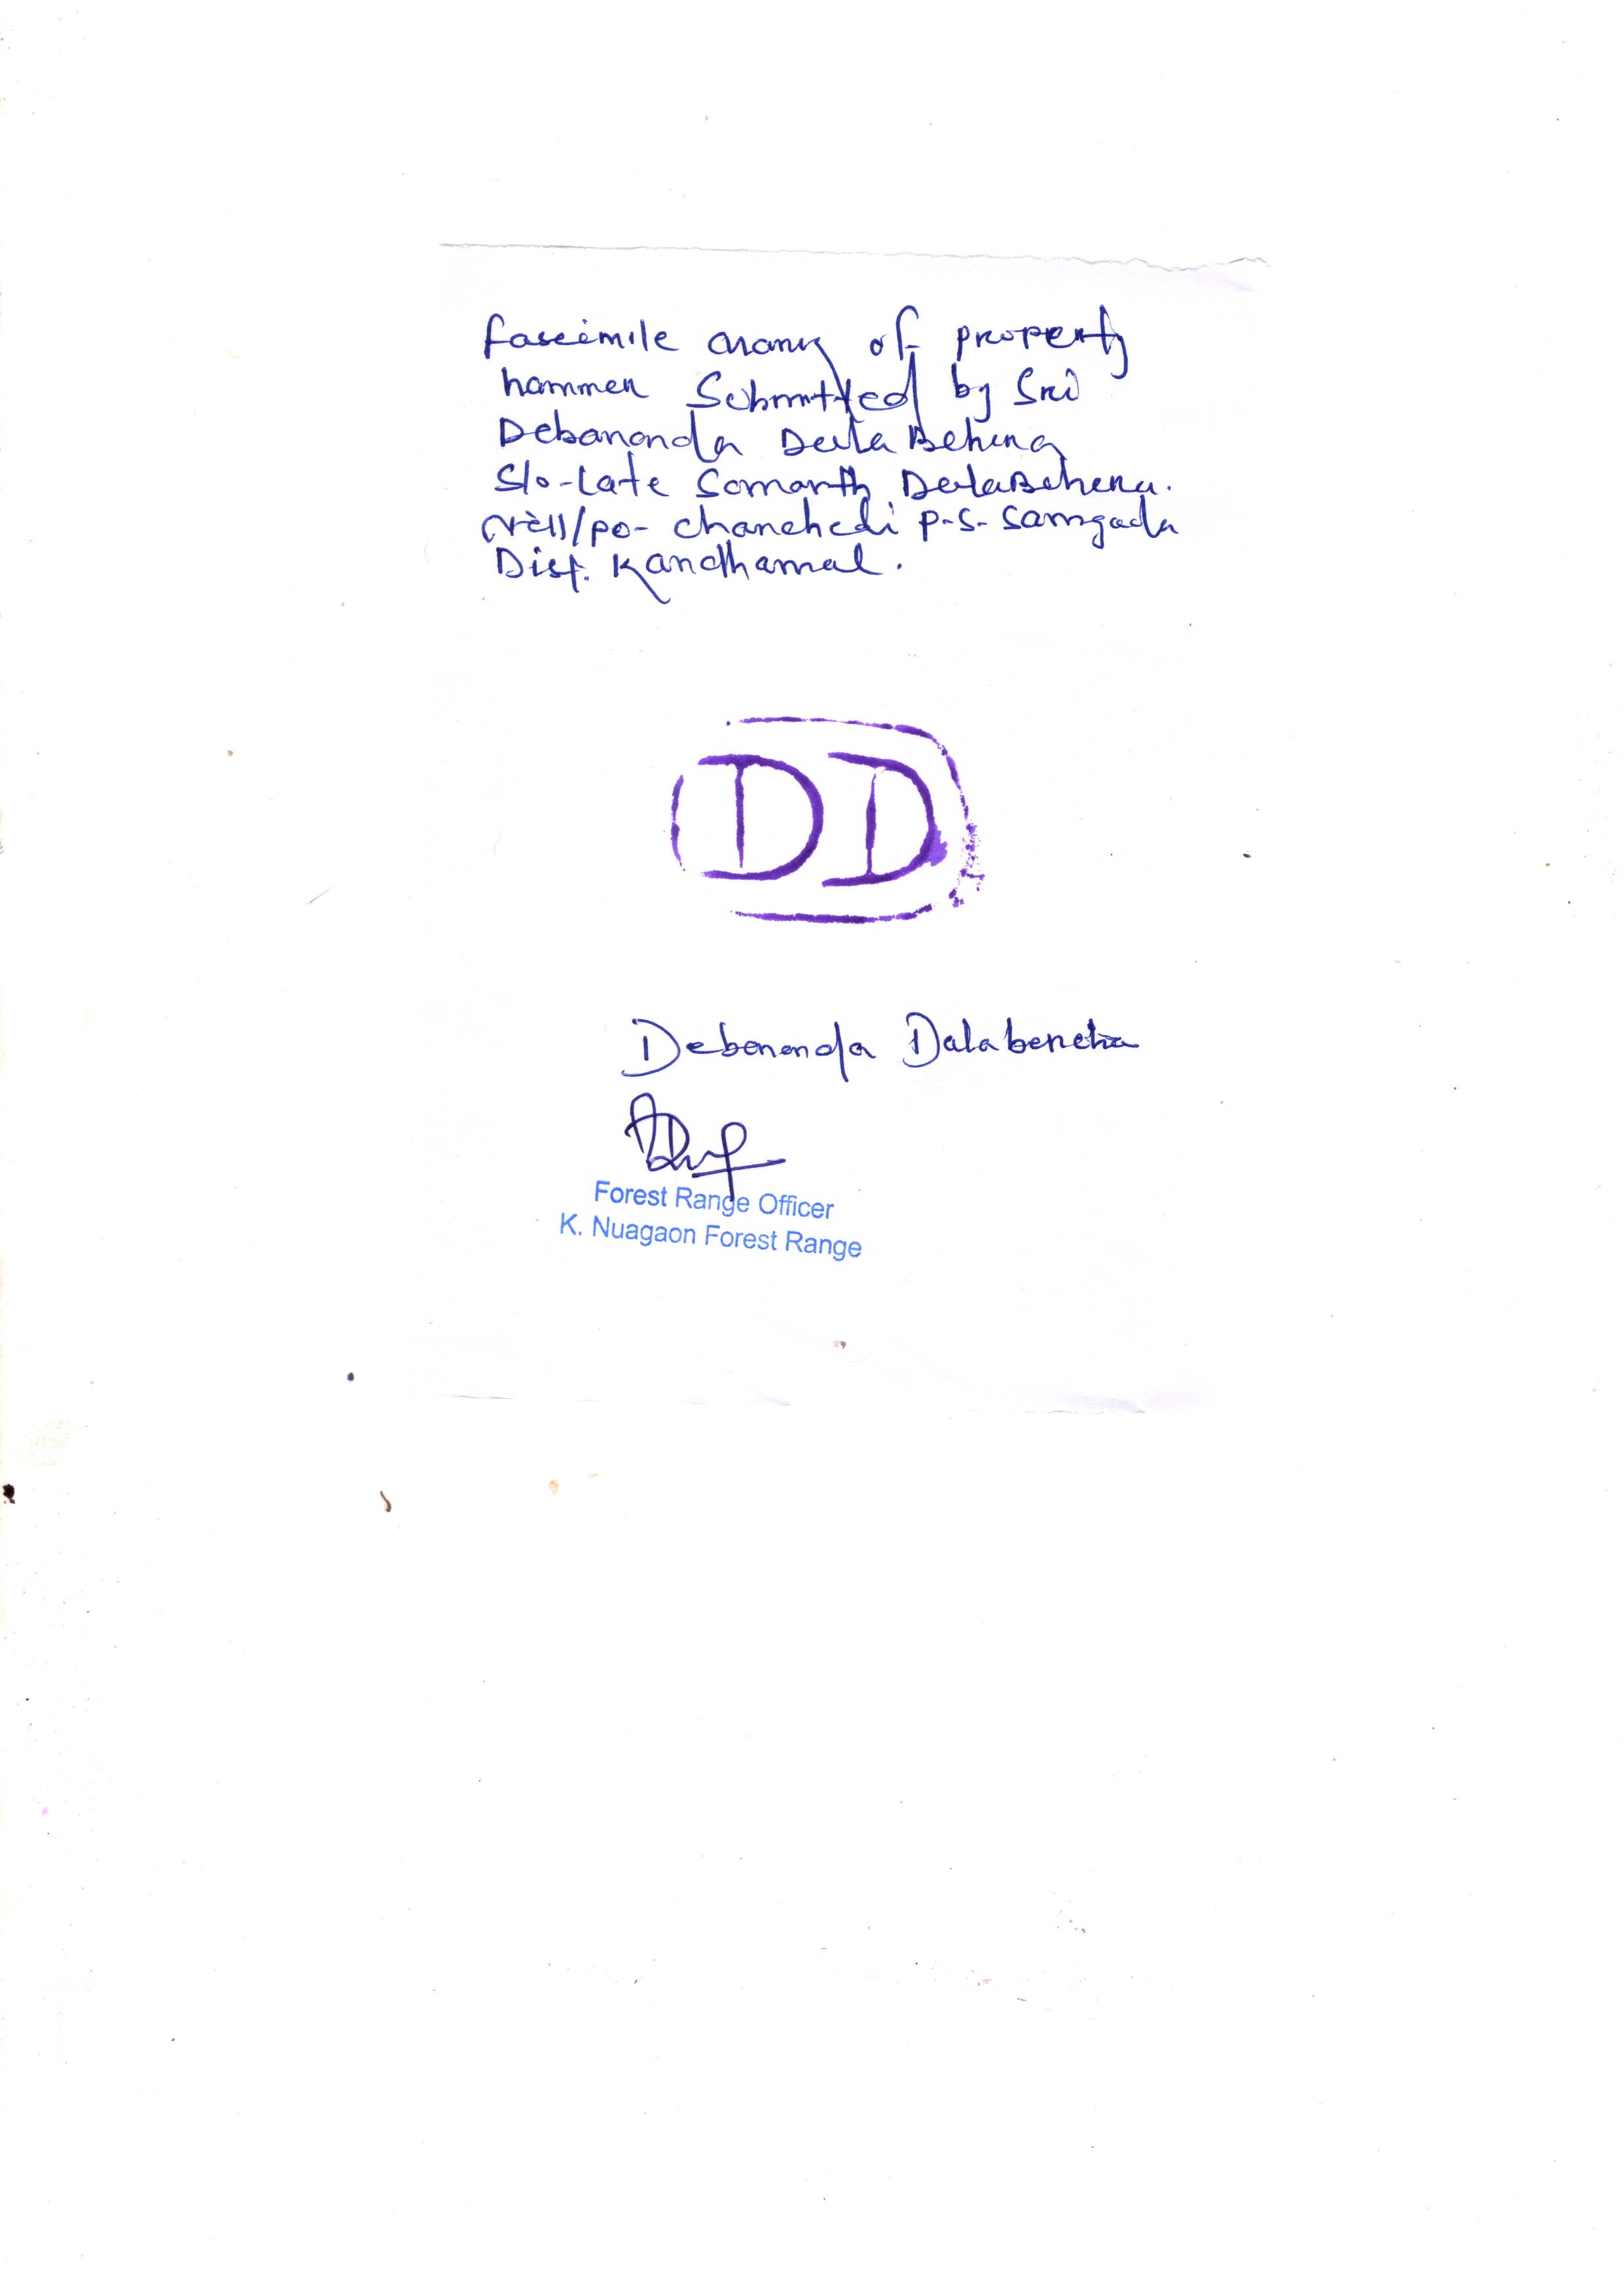 Fascimile mark of property
hammer Submitted by Sri
Debananda DalaBehera
S/o-Late Somanth DalaBehera.
Vill/po- chanchedi P-S- Sarangada
Dist. Kandhamal.
DD
Debananda Dalabehera
Forest Range Officer
K. Nuagaon Forest Range